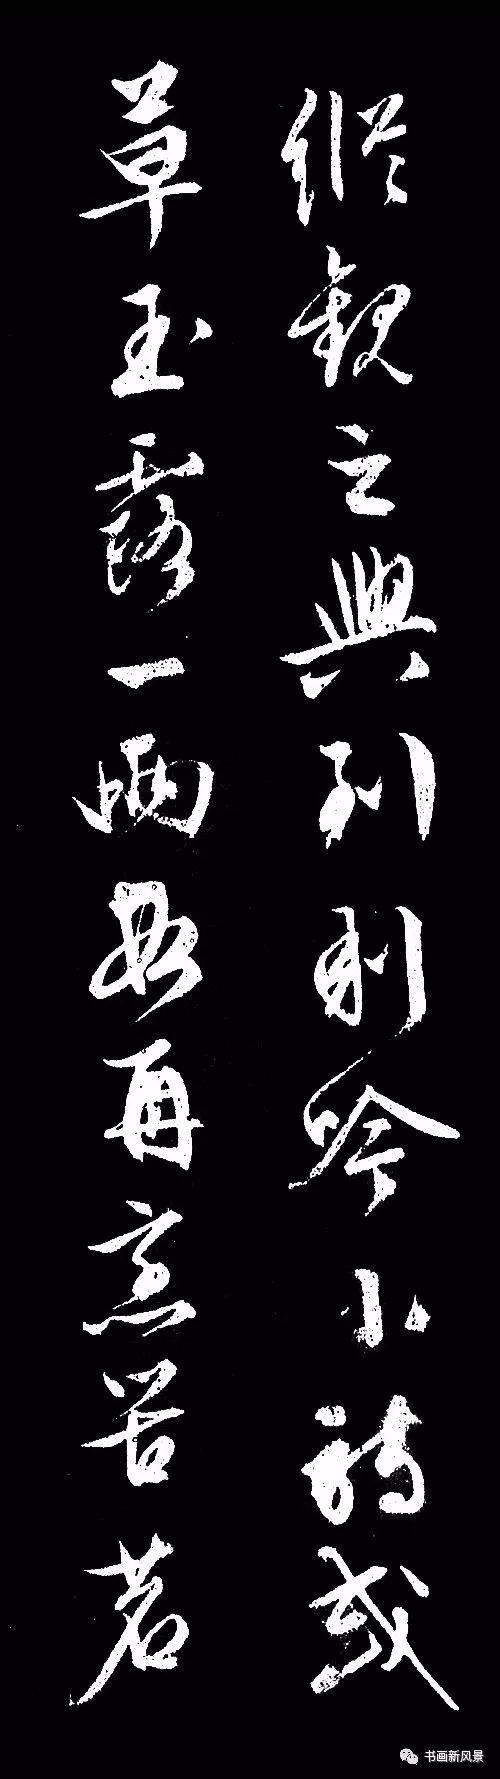 縱觀之興到則吟小詩或
草玉露一兩段再烹苦茗
书画新风景